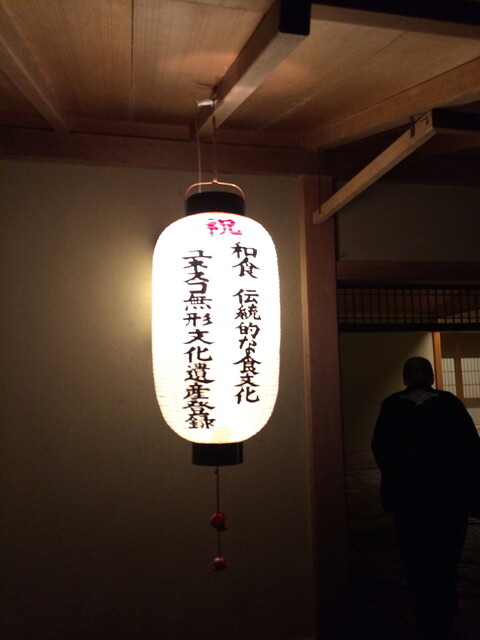 祝
和食 伝統的な食文化
ユネスコ無形文化遺産登録